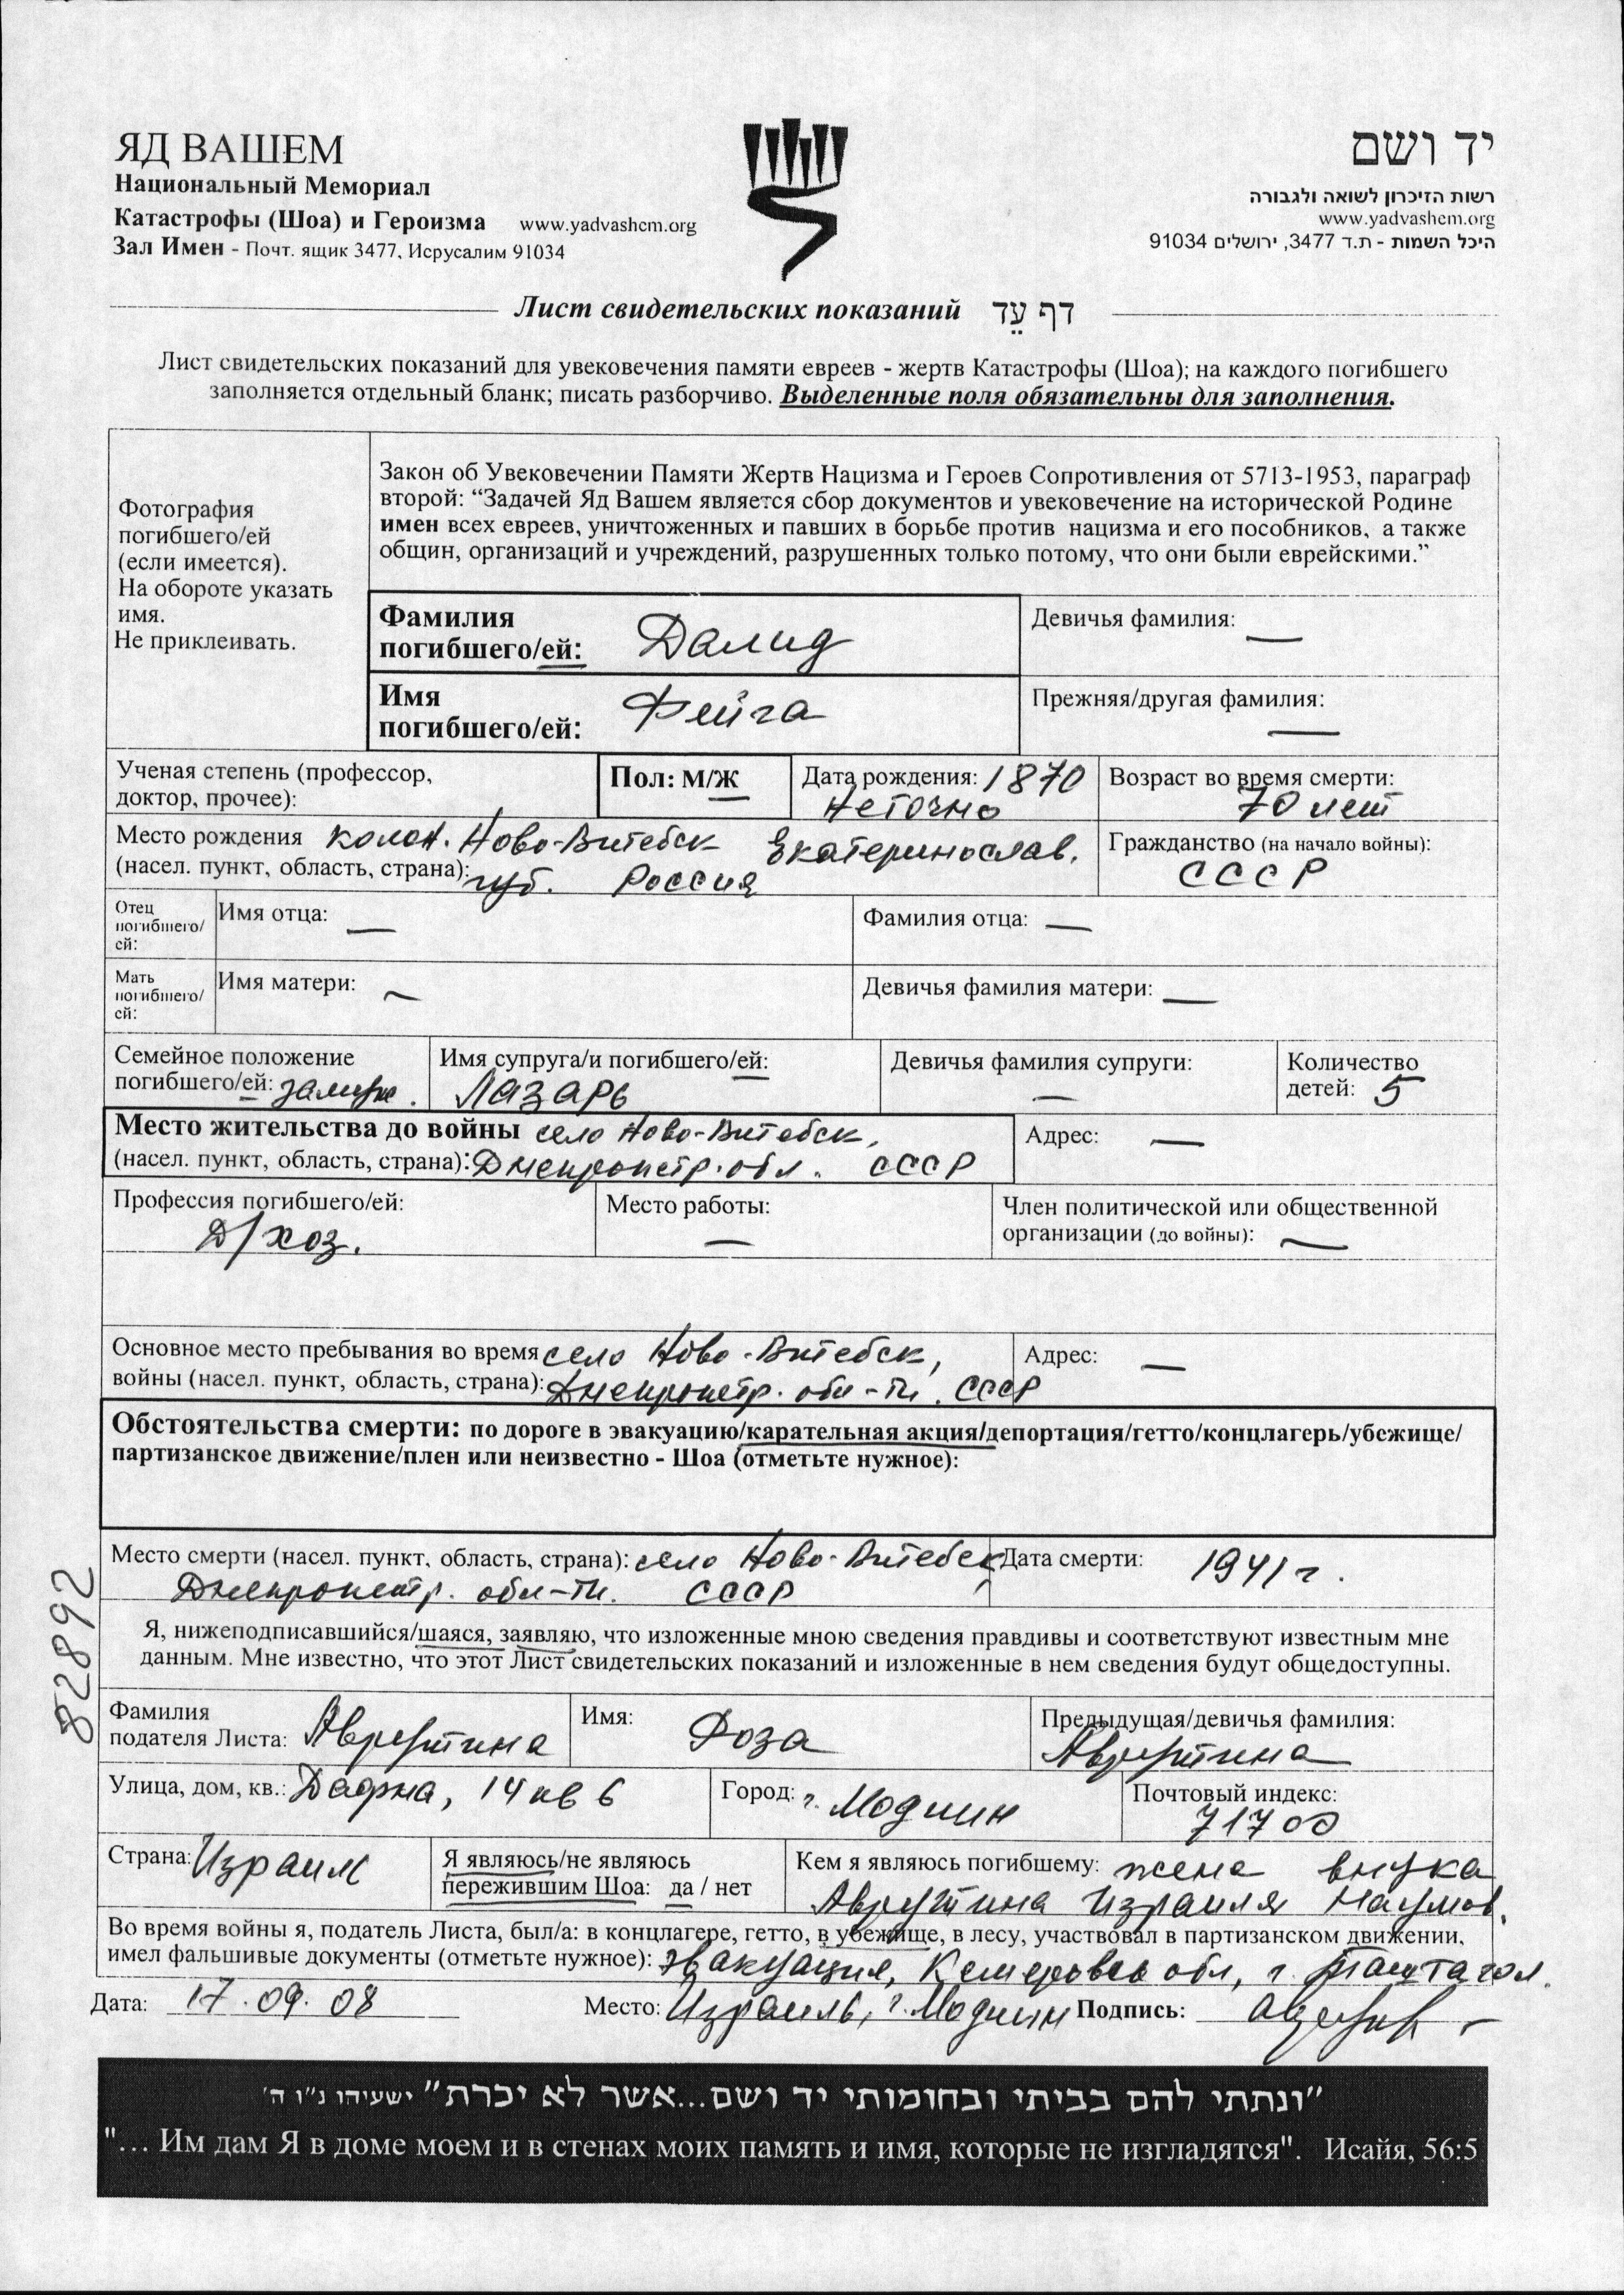 ЯД ВАШЕМ
Национальный Мемориал
Катастрофы (Шоа) и Героизма www.yadvashem.org
Зал Имен - Почт. ящик 3477, Иерусалим 91034
יד ושם
רשות הזיכרון לשואה ולגבורה
www.yadvashem.org
היכל השמות - ת.ד 3477, ירושלים 91034
Лист свидетельских показаний דף עֵד
Лист свидетельских показаний для увековечения памяти евреев - жертв Катастрофы (Шоа); на каждого погибшего
заполняется отдельный бланк; писать разборчиво. Выделенные поля обязательны для заполнения.
Фотография
погибшего/ей
(если имеется).
На обороте указать
имя.
Не приклеивать.
Закон об Увековечении Памяти Жертв Нацизма и Героев Сопротивления от 5713-1953, параграф
второй: “Задачей Яд Вашем является сбор документов и увековечение на исторической Родине
имен всех евреев, уничтоженных и павших в борьбе против нацизма и его пособников, а также
общин, организаций и учреждений, разрушенных только потому, что они были еврейскими.”
Фамилия
погибшего/ей: Далид
Девичья фамилия: —
Имя
погибшего/ей: Фейга
Прежняя/другая фамилия: —
Ученая степень (профессор,
доктор, прочее):
Пол: М/Ж
Дата рождения: 1870
неточно
Возраст во время смерти:
70 лет
Место рождения колон. Ново-Витебск Екатеринослав.
(насел. пункт, область, страна): губ. Россия
Гражданство (на начало войны):
СССР
Отец
погибшего/
ей:
Имя отца: —
Фамилия отца: —
Мать
погибшего/
ей:
Имя матери: —
Девичья фамилия матери: —
Семейное положение
погибшего/ей: замуж.
Имя супруга/и погибшего/ей:
Лазарь
Девичья фамилия супруги:
—
Количество
детей: 5
Место жительства до войны село Ново-Витебск,
(насел. пункт, область, страна): Днепропетр. обл. СССР
Адрес: —
Профессия погибшего/ей:
Д/хоз.
Место работы:
—
Член политической или общественной
организации (до войны): —
Основное место пребывания во время село Ново-Витебск,
войны (насел. пункт, область, страна): Днепропетр. обл-ти. СССР
Адрес: —
Обстоятельства смерти: по дороге в эвакуацию/карательная акция/депортация/гетто/концлагерь/убежище/
партизанское движение/плен или неизвестно - Шоа (отметьте нужное):
Место смерти (насел. пункт, область, страна): село Ново-Витебск
Днепропетр. обл-ти. СССР
Дата смерти: 1941 г.
82892
Я, нижеподписавшийся/шаяся, заявляю, что изложенные мною сведения правдивы и соответствуют известным мне
данным. Мне известно, что этот Лист свидетельских показаний и изложенные в нем сведения будут общедоступны.
Фамилия
подателя Листа: Аврутина
Имя: Роза
Предыдущая/девичья фамилия:
Аврутина
Улица, дом, кв.: Дафна, 14 кв 6
Город: г. Модиин
Почтовый индекс:
71700
Страна: Израиль
Я являюсь/не являюсь
пережившим Шоа: да / нет
Кем я являюсь погибшему: жена внука
Аврутина Израиля Наумов.
Во время войны я, податель Листа, был/а: в концлагере, гетто, в убежище, в лесу, участвовал в партизанском движении,
имел фальшивые документы (отметьте нужное): эвакуация, Кемеровская обл, г. Таштагол.
Дата: 17.09.08
Место: Израиль, г. Модиин Подпись:
”ונתתי להם בביתי ובחומותי יד ושם...אשר לא יכרת” ישעיהו נ”ו ה’
"… Им дам Я в доме моем и в стенах моих память и имя, которые не изгладятся". Исайя, 56:5